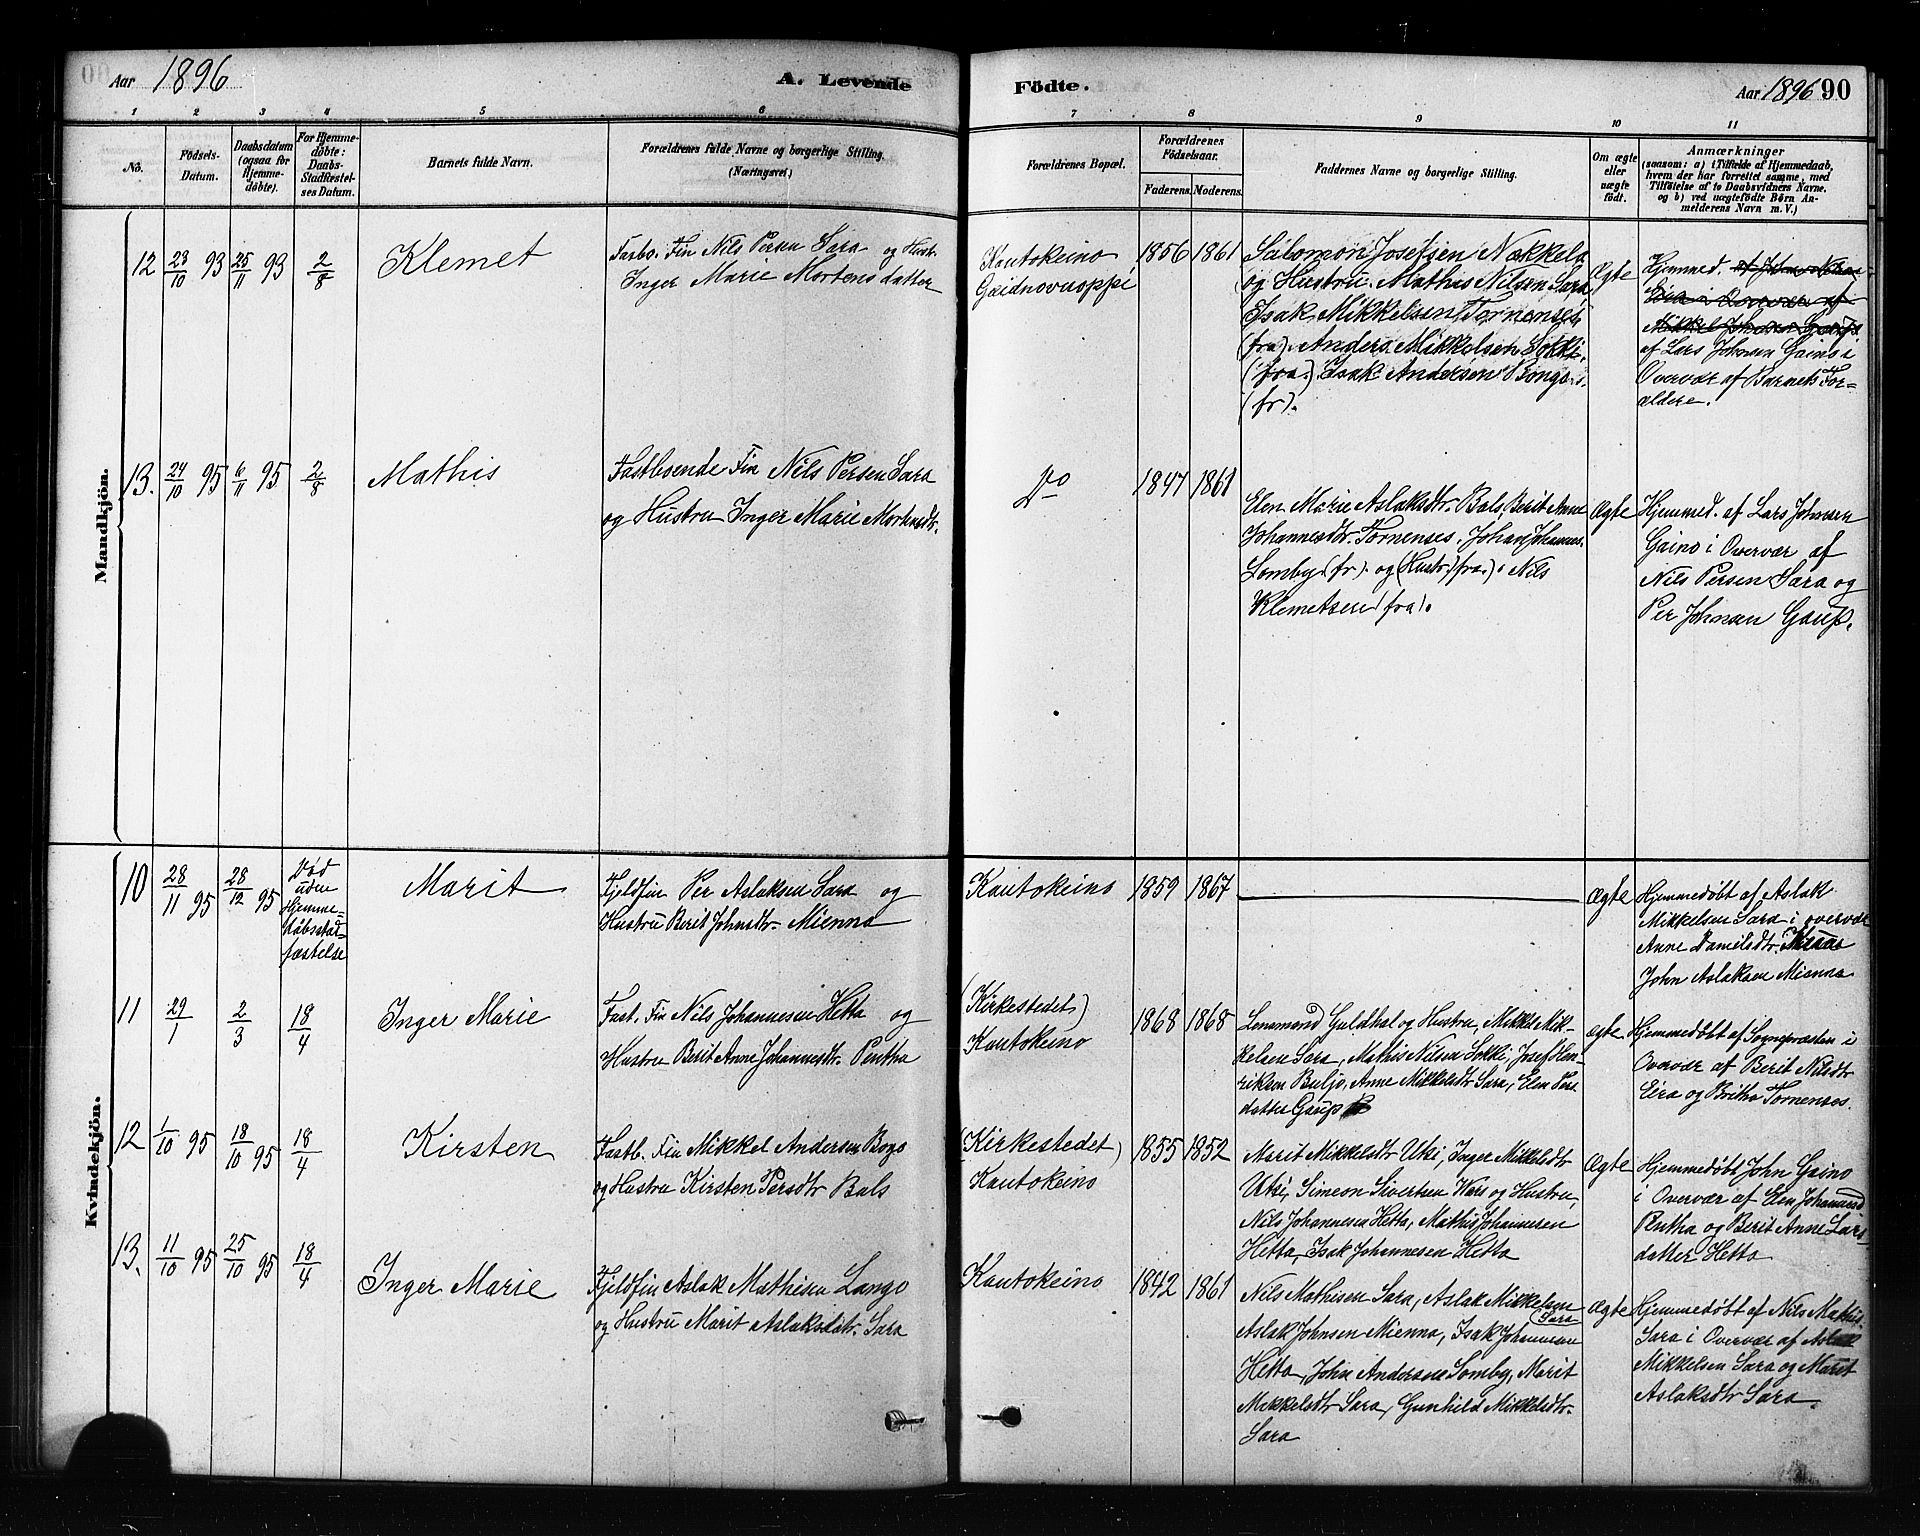 Aar 1896 A. Levende Födte. Aar 1896 90
1 2 3 4 5 6 7 8 9 10 11
No.
Födsels-
Datum.
Daabsdatum
(ogsaa för
Hjemme-
döbte).
For Hjemme-
döbte:
Daabs-
Stadfæstel-
ses Datum.
Barnets fulde Navn.
Forældrenes fulde Navne og borgerlige Stilling.
(Næringsvei)
Forældrenes Bopæl.
Forældrenes
Födselsaar.
Faderens. Moderens.
Faddernes Navne og borgerlige Stilling.
Om ægte
eller
uægte
födt.
Anmærkninger
(saasom: a) i Tilfælde af Hjemmedaab,
hvem der har forrettet samme, med
Tilföielse af to Daabsvidners Navne.
og b) ved uægtefödte Börn An-
melderens Navn m. V.)
Mandkjön.
12 23/10 93 25/11 93 2/8 Klemet
Fastbo. Fin Nils Persen Sara og Hust.
Inger Marie Mortensdatter
Kautokeino
Gæidnovuoppi
1856 1861
Salomon Josefsen Nækkela
og Hustru. Mathis Nilsen Sara
Isak Mikkelsen Tornenses
(fra). Anders Mikkelsen Lokki
(fra.) Isak Andersen Bongo.
(fr).
Ægte
Hjemmed.
af Lars Johnsen Gaino i
Overvær af Barnets For-
ældere.
13. 24/10 95 6/11 95 2/8 Mathis
Fastboende Fin Nils Persen Sara
og Hustru Inger Marie Mortensdtr.
Do
1847 1861
Elen Marie Aslaksdtr. Bals, Berit Anne
Johannesdtr. Tornenses. Johan Johannes.
Lomby (fr). og (Hustr.) fra.). Nils
Klemetsen (fra).
Ægte
Hjemmed. af Lars Johnsen
Gaino i Overvær af
Nils Persen Sara og
Per Johnsen Gaup.
Kvindekjön.
10 28/11 95 28/12 95
Död
uden
Hjemme-
döbsstad-
fæstelse
Marit
Fjeldfin Per Aslaksen Sara og
Hustru Berit Johnsdtr. Mienna
Kautokeino 1859 1867
Ægte
Hjemmedøbt af Aslak
Mikkelsen Sara i overvær
Anne Danielsdtr.
John Aslaksen Mienna
11 29/1 2/3 18/4 Inger Marie
Fast. Fin Nils Johannesen Hetta og
Hustru Berit Anne Johannesdtr. Pentha
(Kirkestedet)
Kautokeino
1868 1868
Lensmand Guldhal og Hustru, Mikkel Mik-
kelsen Sara, Mathis Nilsen Lokki, Josef Hen-
riksen Buljo, Anne Mikkelsdtr Sara, Elen Pers
datter Gaup
ægte
Hjemmedøbt af Sognepræsten i
Overvær af Berit Nilsdtr
Eira og Britha Tornenses.
12 1/10 95 18/10 95 18/4 Kirsten
Fastb. Fin Mikkel Andersen Bogo
og Hustru Kirsten Persdtr Bals
(Kirkestedet)
Kautokeino
1855 1852
Marit Mikkelsdtr Utsi, Inger Mikkelsdtr
Utsi, Simeon Sivertsen Wars og Hustru,
Nils Johannesen Hetta, Mathis Johannesen
Hetta, Isak Johannesen Hetta
Ægte
Hjemmedøbt John Gaino
i Overvær af Elen Johannesd
Pentha og Berit Anne Lars
datter Hetta
13. 11/10 95 25/10 95 18/4 Inger Marie
Fjeldfin Aslak Mathisen Lango
og Hustru Marit Aslaksdatr. Sara
Kautokeino
1842 1861
Nils Mathisen Sara, Aslak Mikkelsen
(Sara
Aslak Johnsen Mienna, Isak Johannesen
Hetta, John Andersen Somby, Marit
Mikkelsdtr Sara, Gunhild Mikkelsdtr.
Sara
Ægte
Hjemmedøbt af Nils Mathis.
Sara i Overvær af Aslak
Mikkelsen Sara og Marit
Aslaksdtr Sara.